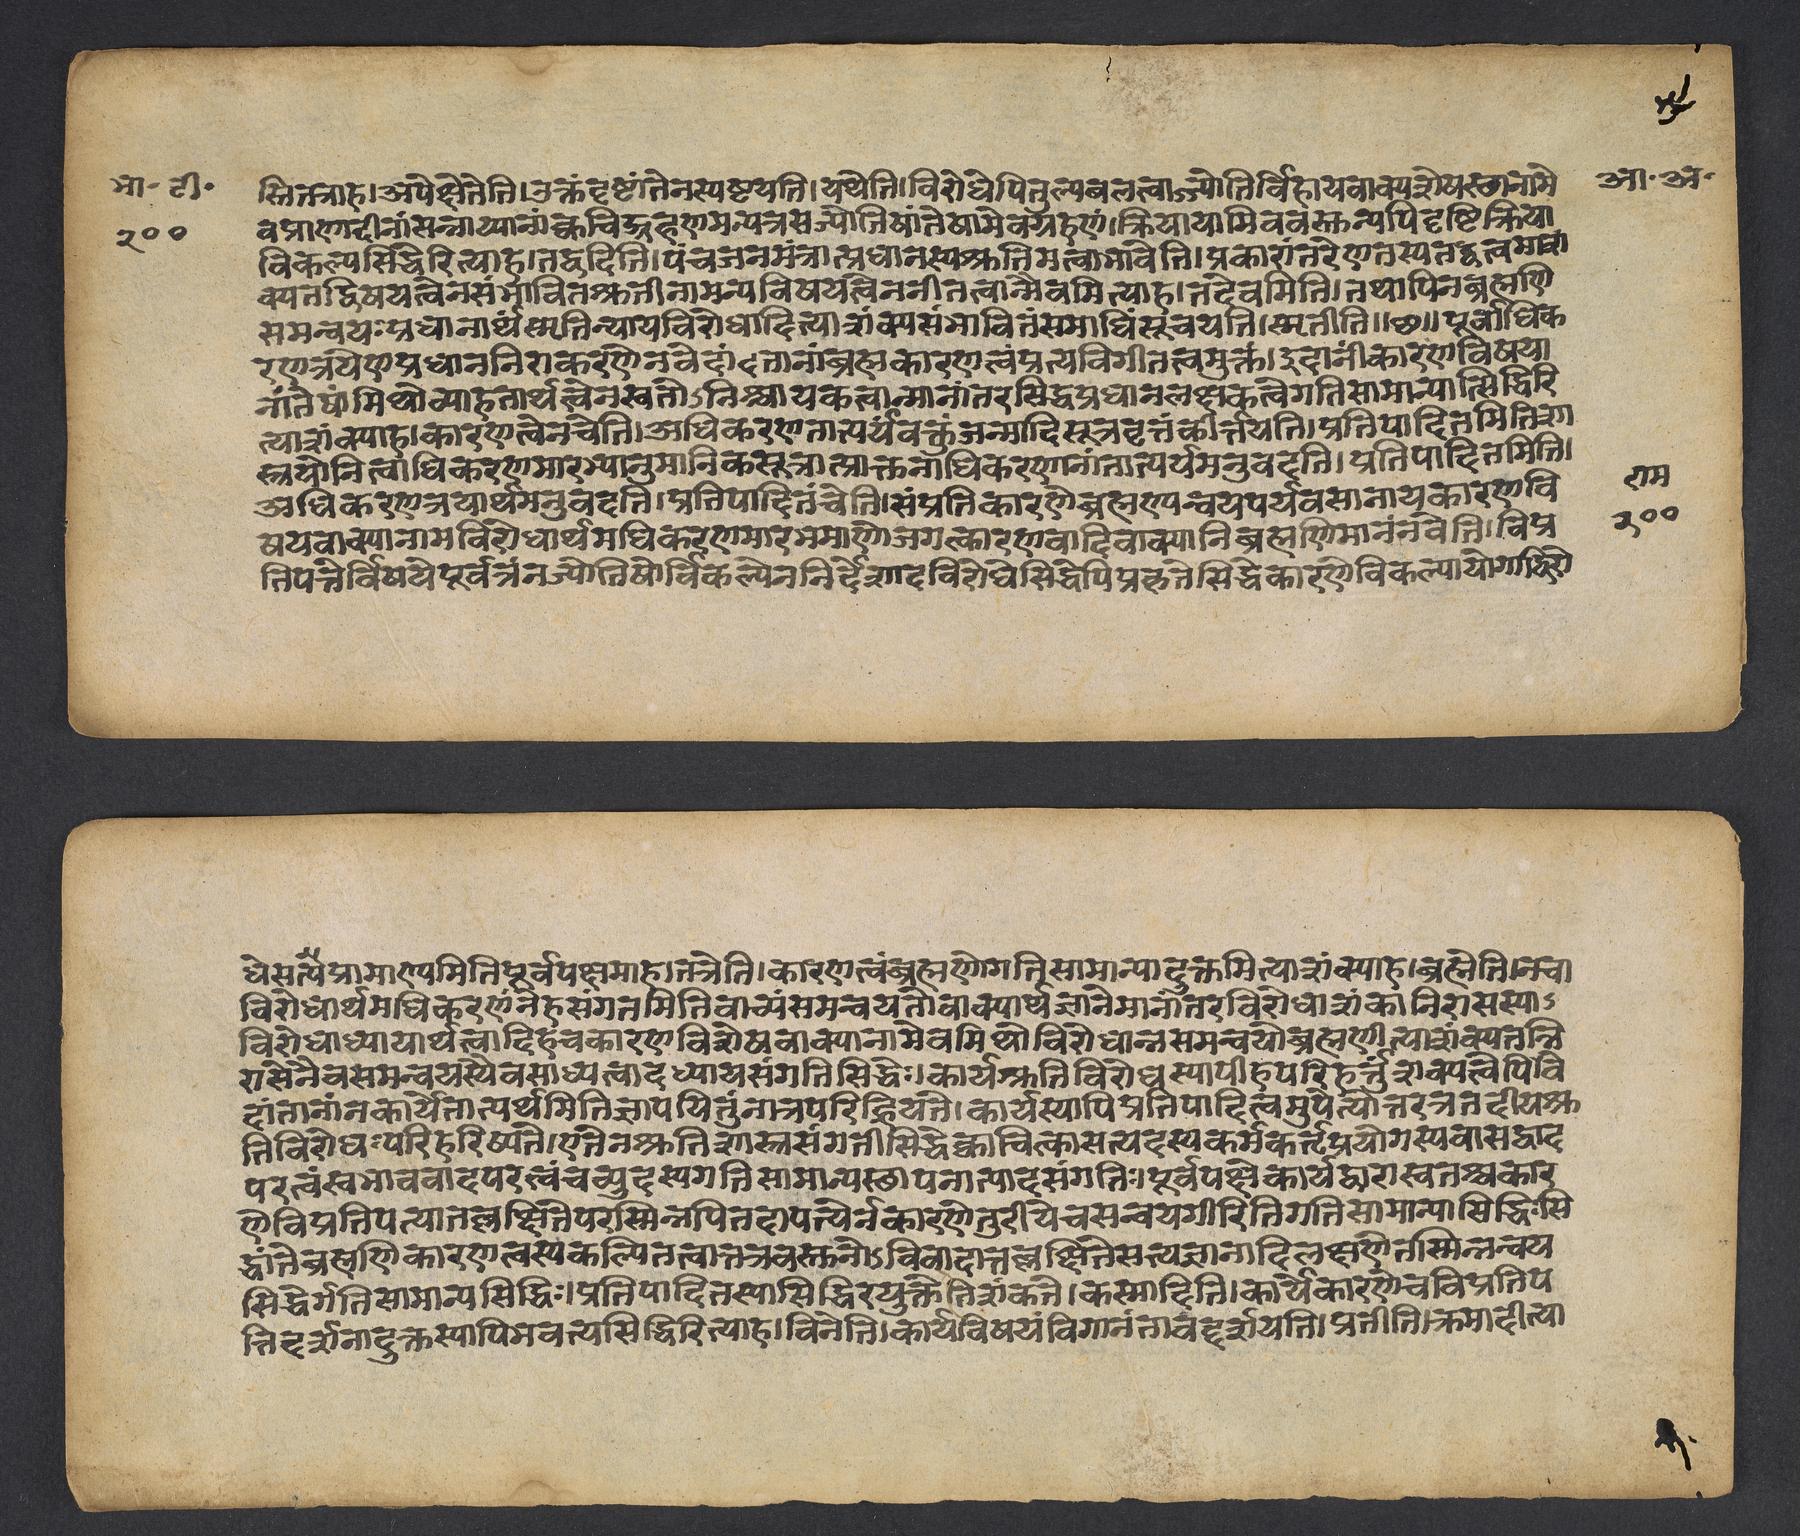 भा॰ टी॰
२००
आ॰ अ॰
स्तितत्राह।अपेक्षेतेति।उक्तंदृष्टांतेनस्पष्टयति।यथेति।विरोधेपितुल्यबलत्वाज्ज्योतिर्विहायवाक्यशेषस्छानामे
वप्राणादीनांसन्नाय्यानांक्वचिद्ग्रहणमन्यत्रसज्योतिषांतेषामेवग्रहणं।क्रियायामिववस्तन्यपिदृष्टिक्रिया
विकल्पसिद्धिरित्याह।तद्वदिति।पंचजनमंत्रात्प्रधानस्यश्रुतिमत्वाभावेति।प्रकारांतरेणतस्यतद्वत्वमाशं
क्यतद्विषयत्वेनसंभावितश्रुतीनामन्यविषयत्वेननीतत्वान्मैवमित्याह।तदेवमिति।तथापिनब्रह्मणि
समन्वयःप्रधानार्थस्मृतिन्यायविरोधादित्याशंक्यसंभावितंसमाधिंसूचयति।स्मृतीति॥छ॥पूर्वाधिक
रणत्रयेणप्रधाननिराकरणेनवेदांदतानांब्रह्मकारणत्वंप्रत्यविगीतत्वमुक्तं।इदानींकारणविषया
नांतेषांमिथोव्याहतार्थत्वेनस्वतोऽनिश्चायकत्वान्मानांतरसिद्धप्रधानलक्षकत्वेगतिसामान्यात्सिद्धिरि
त्याशंक्याह।कारणत्वेनचेति।अधिकरणतात्पर्यंवक्तुंजन्मादिसूत्रवृत्तंकीर्त्तयति।प्रतिपादितमितिशा
स्त्रयोनित्वाधिकरणमारभ्यानुमानिकसूत्रात्प्राक्तनाधिकरणानांतात्पर्यमनुवदति।प्रतिपादितमिति।
अधिकरणत्रयार्थमनुवदति।प्रतिपादितंचेति।संप्रतिकारणेब्रह्मण्यन्वयपर्यवसानायकारणवि
षयवाक्यानामविरोधार्थमधिकरणमारभमाणोजगत्कारणवादिवाक्यानिब्रह्मणिमानंनवेति।विप्र
तिपत्तेर्विषयेपूर्वत्रंनज्योतिषोर्विकल्पेननिर्देशादविरोधेसिद्धेपिप्रकृतेसिद्धेकारणेविकल्पायोगाद्विरो
राम
२००
धेसत्यप्रामाण्यमितिपूर्वपक्षमाह।तत्रेति।कारणत्वंब्रह्मणोगतिसामान्यादुक्तमित्याशंक्याह।ब्रह्मेति।नचा
विरोधार्थमधिकरणंनेहसंगतमितिवाच्यंसमन्वयतोवाक्यार्थज्ञानेमानांतरविरोधाशंकानिरासस्याऽ
विरोधाध्यायार्थत्वादिहचकारणविशेष्ठवाक्यानामेवमिथोविरोधान्नसमन्वयोब्रह्मणीत्याशंक्यतन्नि
रासेनैवसमन्वयस्यैवसाध्यत्वादध्यायसंगतिसिद्धेः।कार्यश्रुतिविरोधस्यापीहपरिहर्त्तुंशक्यत्वेपिवे
दांतानांनकार्येतात्पर्यमितिज्ञापयितुंनात्रपरिह्रियंते।कार्यस्यापिप्रतिपादित्वमुपेत्योत्तरत्रतदीयश्रु
तिविरोधःपरिहरिष्यते।एतेनश्रुतिशास्त्रसंगतीसिद्धेक्वाचित्कासत्यदस्यकर्मकर्त्तृप्रयोगस्यवासद्वाद
परत्वंस्वभाववादपरत्वंचव्युदस्यगतिसामान्यस्छापनात्पादसंगतिः।पूर्वपक्षेकार्यद्वारास्वतश्चकार
णेविप्रतिपत्यातल्लक्षितेपरस्मिन्नपितदापत्त्येर्नकारणेतुरीयेचसन्वयगीरितिगतिसामान्यासिद्धिःसि
द्धांतेब्रह्मणिकारणत्वस्यकल्पितत्वात्तत्रवस्तुतोऽविवादात्तल्लक्षितेसत्यज्ञानादिलक्षणेतस्मिन्नन्वय
सिद्धेर्गतिसामान्यसिद्धिः।प्रतिपादितस्यासिद्धिरयुक्तेतिशंकते।कस्मादिति।कार्येकारणेचविप्रतिप
त्तिदर्शनादुक्तस्यापिभवत्यसिद्धिरित्याह।विनेति।कार्यविषयंविगानंतावद्दर्शयति।प्रतीति।क्रमादीत्या